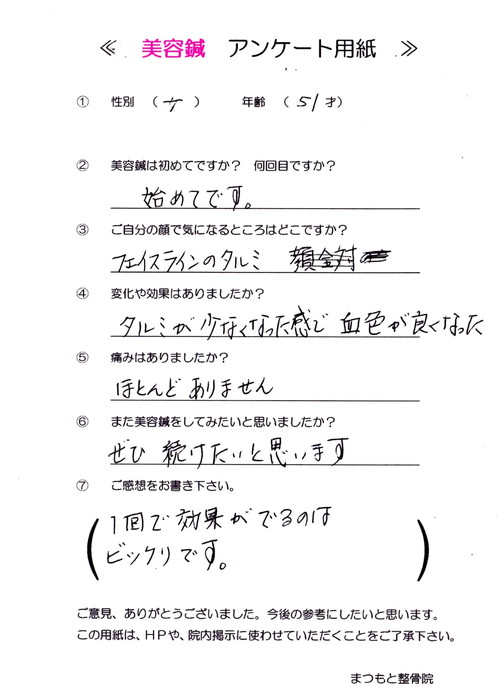 ≪ 美容鍼 アンケート用紙 ≫
① 性別 (女) 年齢 (51才)
② 美容鍼は初めてですか? 何回目ですか?
始めてです。
③ ご自分の顔で気になるところはどこですか?
フェイスラインのタルミ
④ 変化や効果はありましたか?
タルミが少なくなった感じ 血色が良くなった
⑤ 痛みはありましたか?
ほとんどありません
⑥ また美容鍼をしてみたいと思いましたか?
ぜひ 続けたいと思います
⑦ ご感想をお書き下さい。
1回で効果がでるのは
ビックリです。
ご意見、ありがとうございました。今後の参考にしたいと思います。
この用紙は、HPや、院内掲示に使わせていただくことをご了承下さい。
まつもと整骨院